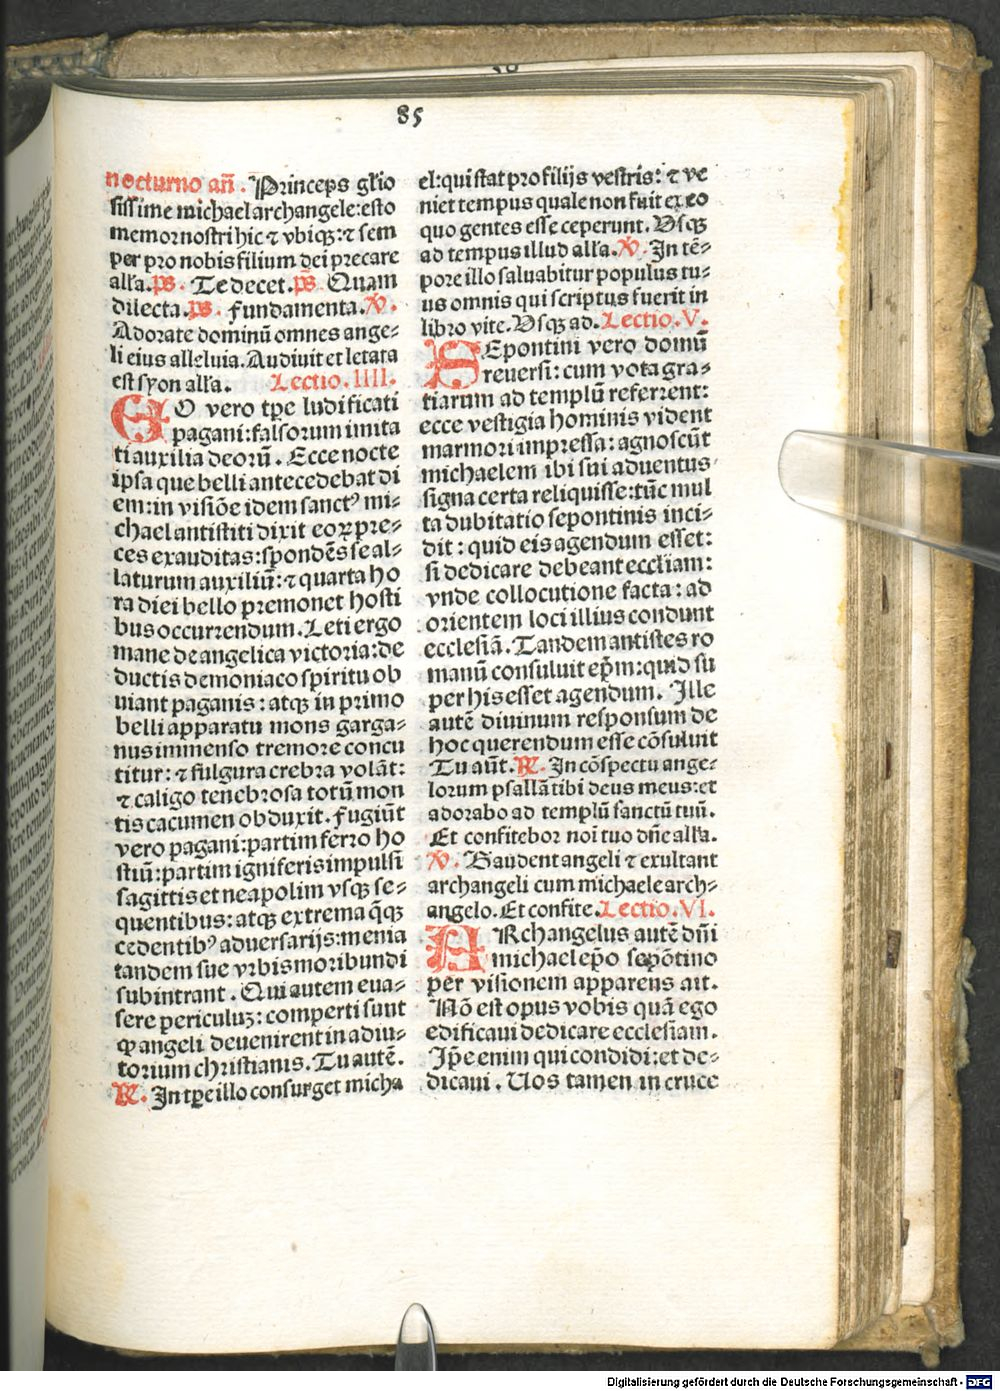 85
nocturno añ. Princeps gl̃io
sissime michael archangele:esto
memor nostri hic ⁊ vbiqꝫ:⁊ sem
per pro nobis filium dei precare
all̃a. ps̃. Te decet. ps̃. Quam
dilecta. ps̃. fundamenta. ℣.
Adorate dominū omnes ange⸗
li eius alleluia. Audiuit et letata
est syon all̃a. Lectio. IIII.
EO vero tp̃e ludificati
pagani:falsorum imita
ti auxilia deorū. Ecce nocte
ipsa que belli antecedebat di
em:in visiõe idem sanctꝰ mi⸗
chael antistiti dixit eoꝝ pre⸗
ces exauditas:spondẽs se al⸗
laturum auxiliū:⁊ quarta ho
ra diei bello premonet hosti
bus occurrendum. Leti ergo
mane de angelica victoria:de
ductis demoniaco spiritu ob
uiant paganis:atqꝫ in primo
belli apparatu mons garga⸗
nus immenso tremore concu
titur:⁊ fulgura crebra volãt:
⁊ caligo tenebrosa totū mon
tis cacumen obduxit. Fugiūt
vero pagani:partim ferro ho
stiū:partim igniferis impulsi
sagittis et neapolim vsqꝫ se⸗
quentibus:atqꝫ extrema q̃qꝫ
cedentibꝰ aduersarijs:menia
tandem sue vrbis moribundi
subintrant. Qui autem eua⸗
sere periculuꝫ:comperti sunt
ꝙ angeli deuenirent in adiu⸗
torium christianis. Tu autẽ.
℟. In tp̃e illo consurget micha
el:qui stat pro filijs vestris:⁊ ve
niet tempus quale non fuit ex eo
quo gentes esse ceperunt. Vsqꝫ
ad tempus illud all̃a. ℣. In tẽ⸗
pore illo saluabitur populus tu⸗
us omnis qui scriptus fuerit in
libro vite. Vsqꝫ ad. Lectio. V.
SEpontini vero domū
reuersi:cum vota gra⸗
tiarum ad templū referrent:
ecce vestigia hominis vident
marmori impressa:agnoscūt
michaelem ibi sui aduentus
signa certa reliquisse:tūc mul
ta dubitatio sepontinis inci⸗
dit:quid eis agendum esset:
si dedicare debeant eccl̃iam:
vnde collocutione facta:ad
orientem loci illius condunt
ecclesiã. Tandem antistes ro
manū consuluit ep̃m:quid su
per his esset agendum. Ille
autẽ diuinum responsum de
hoc querendum esse cõsuluit
Tu aūt. ℟. In cõspectu ange⸗
lorum psallã tibi deus meus:et
adorabo ad templū sanctū tuū.
Et confitebor noĩ tuo dñe all̃a.
℣. Gaudent angeli ⁊ exultant
archangeli cum michaele arch⸗
angelo. Et confite. Lectio. VI.
ARchangelus autẽ dñi
michael ep̃o sepõtino
per visionem apparens ait.
Nõ est opus vobis quã ego
edificaui dedicare ecclesiam.
Ip̃e enim qui condidi:et de⸗
dicaui. Uos tamen in cruce
Digitalisierung gefördert durch die Deutsche Forschungsgemeinschaft - DFG